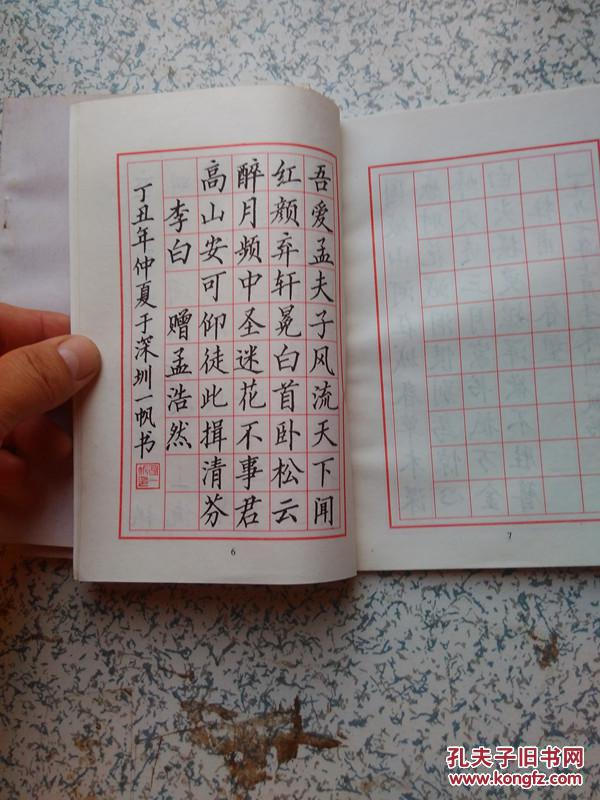 吾爱孟夫子风流天下闻
红颜弃轩冕白首卧松云
醉月频中圣迷花不事君
高山安可仰徒此揖清芬
李白 赠孟浩然
丁丑年仲夏于深圳一帆书
6
7
孔夫子旧书网
www.kongfz.com